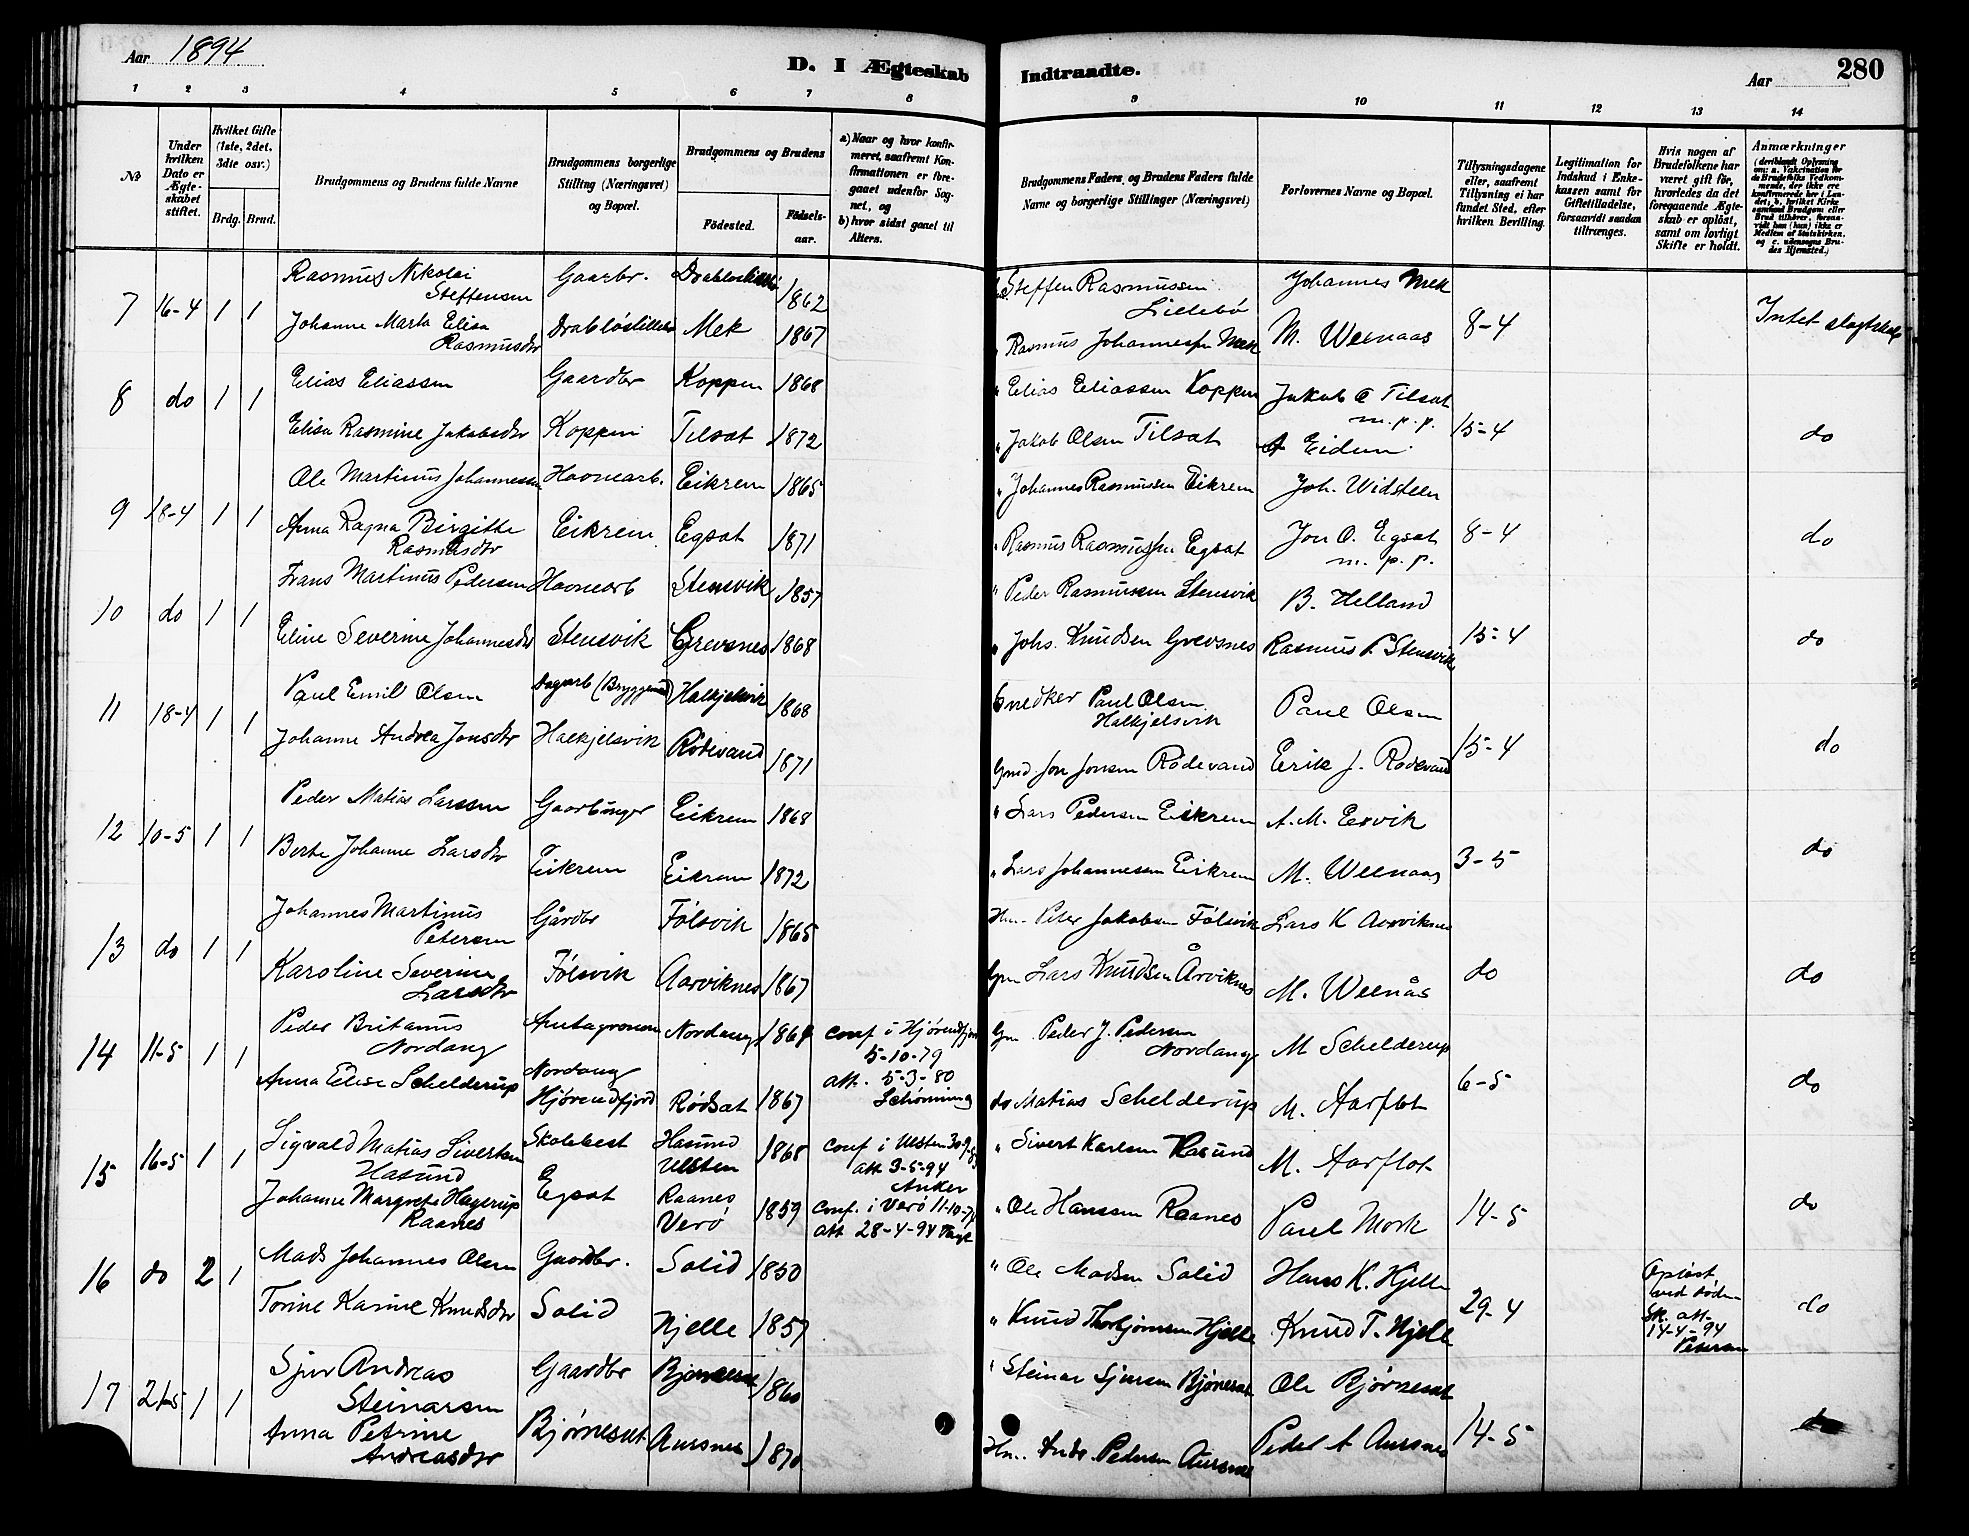 Aar 1894
D. I Ægteskab Indtraadte.
Aar
280
1 2 3 4 5 6 7 8 9 10 11 12 13 14
No
Under hvilken Dato er Ægteskabet stiftet.
Hvilket Gifte (1ste, 2det, 3die osv.)
Brdg. Brud.
Brudgommens og Brudens fulde Navne
Brudgommens borgerlige Stilling (Næringsvei) og Bopæl.
Brudgommens og Brudens
Fødested.
Fødselsaar.
a) Naar og hvor konfirmeret, saafremt Konfirmationen er foregaaet udenfor Sognet, og
b) hvor sidst gaaet til Alters.
Brudgommens Faders og Brudens Faders fulde Navne og borgerlige Stillinger (Næringsvei)
Forlovernes Navne og Bopæl.
Tillysningsdagene eller, saafremt Tillysning ei har fundet Sted, efter hvilken Bevilling.
Legitimation for Indskud i Enkekassen samt for Giftetilladelse, forsaavidt saadan tiltrænges.
Hvis nogen af Brudefolkene har været gift før, hvorledes da det foregaaende Ægteskab er opløst, samt om lovligt Skifte er holdt.
Anmærkninger
7 16-4 1 1 Rasmus Nikolai Steffensen Gaarbr. 1862 Steffen Rasmussen Lillebø Johannes Mek
Johanne Marta Elisa Rasmusdtr Mek 1867 Rasmus Johannessen Mek M. Weenaas 8-4 Intet slægtskap
8 do 1 1 Elias Eliassen Gaardbr Koppen 1868 " Elias Eliassen Koppen Jakob O Tilsat m.p.p.
Elisa Rasmine Jakobsdtr Koppen Tilsat 1872 " Jakob Olsen Tilsat A Eidem 15-4 do
9 18-4 1 1 Ole Martinus Johannessen Havnearb. Eikrem 1865 " Johannes Rasmussen Eikrem Joh. Widsteen
Anna Ragna Birgitte Rasmusdtr Eikrem Egsat 1871 " Rasmus Rasmussen Egsat Jon O. Egsat m.p.p. 8-4 do
10 do 1 1 Frans Martinus Pedersen Havnearb Stensvik 1857 " Peder Rasmussen Stensvik B. Helland
Eline Severine Johannesdtr Stensvik Grevsnes 1868 " Johs. Knudsen Grevsnes Rasmus P. Stensvik 15-4 do
11 18-4 1 1 Paul Emil Olsen Dagarb Halkjelsvik 1868 Snedker Paul Olsen Halkjelsvik Paul Olsen
Johanne Andrea Jonsdtr Halkjelsvik Rødevand 1871 Gmd Jon Jonsen Rødevand Erik J. Rødevand 15-4 do
12 10-5 1 1 Peder Matias Larssen Gaarbruger Eikrem 1868 " Lars Pedersen Eikrem A. M. Ervik
Berte Johanne Larsdtr Eikrem Eikrem 1872 " Lars Johannessen Eikrem M. Weenaas 3-5 do
13 do 1 1 Johannes Martinus Petersen Gårdbr Følsvik 1865 Hm. Peter Jakobsen Følsvik Lars K Aarviknes
Karoline Severine Larsdtr Følsvik Aarviknes 1867 Gm Lars Knudsen Årviknes M. Weenås do do
14 11-5 1 1 Peder Britanus Nordang Nordang 1864 conf i Hjørendfjord 5-10-79 att. 5-3-80 Schønning Gm Peder J. Pedersen Nordang M Schelderup
Anna Elise Schelderup Nordang Hjørendfjord Rødsat 1867 do Matias Schelderup M. Aarflot 6-5 do
15 16-5 1 1 Sigvald Matias Sivertsen Hasund Skolebest Hasund Ulsten 1868 conf i Ulsten 30-9-83 att 3-5-94 Anker " Sivert Karlsen Hasund M. Aarflot
Johanne Margrete Hagerup Raanes Egsat Raanes Verø 1859 conf. i Verø 11-10-74 att 28-4-94 " Ole Hanssen Raanes Paul Mork 14-5 do
16 do 2 1 Mads Johannes Olsen Gaardbr. Solid 1850 " Ole Madsen Solid Hans K. Hjelle
Torine Karine Knudsdtr Solid Hjelle 1857 " Knud Thorbjørnsen Hjelle Knud T. Hjelle 29-4 Opløst ved døden Sk. att. 14-4-94 Petersen do
17 21-5 1 1 Sjur Andreas Steinarsen Gaardbr 1860 " Steinar Sjursen Bjørnesat Ole Bjørnesat
Anna Petrine Andreasdtr Bjørnesat Aursnes 1870 Hm. Andr. Pedersen Aursnes Peder A Aursnes 14-5 do